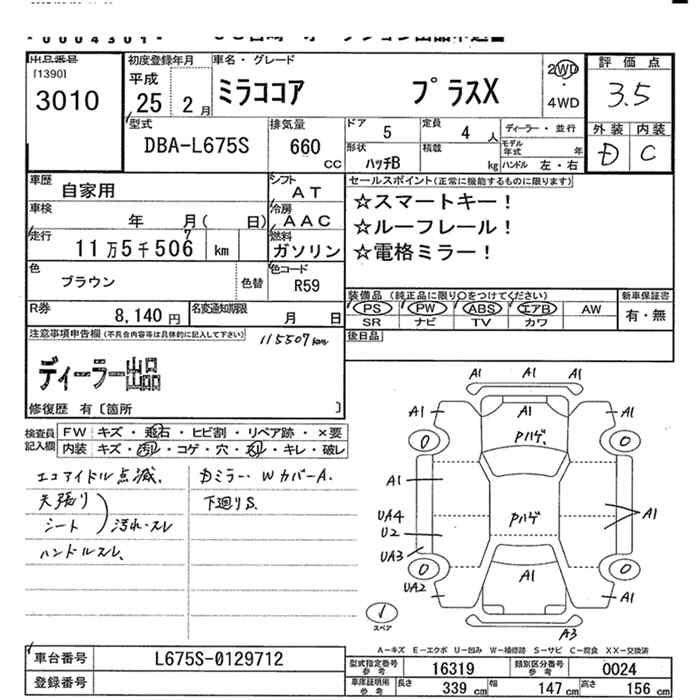 出品番号
[1390]
3010
初度登録年月
平成
25 2月
車名・グレード
ミラココア プラスX
2WD
・
4WD
評価点
3.5
外装 内装
D C
型式
DBA-L675S
排気量
660
CC
ドア 5
定員 4 人
ディーラー・並行
形状 ハッチB
積載 kg
モデル年式 年
ハンドル 左・右
車歴
自家用
シフト
AT
車検
年 月( 日)
冷房
AAC
走行
11万5千506 km
7
燃料
ガソリン
色
ブラウン
色替
色コード
R59
R券
8,140 円
名変通知期限
月 日
セールスポイント(正常に機能するものに限ります)
☆スマートキー!
☆ルーフレール!
☆電格ミラー!
装備品 (純正品に限り○をつけてください)
PS PW ABS エアB AW
SR ナビ TV カワ
新車保証書
有・無
後日品
注意事項申告欄(不具合内容等は具体的に記入して下さい)
115507km
ディーラー出品
修復歴 有〔箇所 〕
検査員
記入欄
FW キズ・飛石・ヒビ割・リペア跡・×要
内装 キズ・汚レ・コゲ・穴・スレ・キレ・破レ
エコアイドル点滅.
天張り
シート
汚れ・スレ
ハンドルスレ.
Dミラー・WカバーA.
下廻りS.
A1 A1 A1
A1 A1 A1
0 0
Pハゲ.
A1
UA4
U2
UA3
Pハゲ
A1
0 0
UA2
A1
A1
スペア
A3
A-キズ E-エクボ U-凹み W-補修跡 S-サビ C-腐食 XX-交換済
車台番号
L675S-0129712
登録番号
型式指定番号
参考
16319
類別区分番号
参考
0024
車庫証明用
参考
長さ 339 cm
幅 147 cm
高さ 156 cm